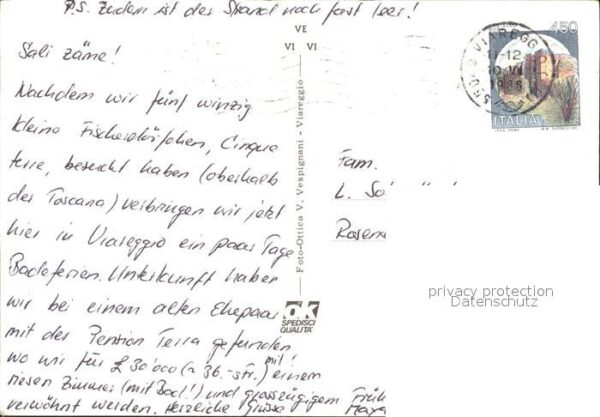 P.S. Zudem ist der Strand noch fast leer!
Sali zäme!
Nachdem wir fünf winzig
kleine Fischerdörfchen, Cinque
terre, besucht haben (oberhalb
der Toscana) verbringen wir jetzt
hier in Viareggio ein paar Tage
Badeferien. Unterkunft haben
wir bei einem alten Ehepaar
mit der Pension Terra gefunden
wo wir für £ 30'000 (≈ 36.- sFr.) mit! einem
riesen Zimmer (mit Bad!) und grosszügigem Früh
verwöhnt werden. Herzliche Grüsse Maya
VE
VI VI
Foto-Ottica V. Vespignani - Viareggio
OK
SPEDISCI
QUALITÀ
VIAREGG
11-12
450
ITALIA
Fam.
L. So
Rosen
privacy protection
Datenschutz